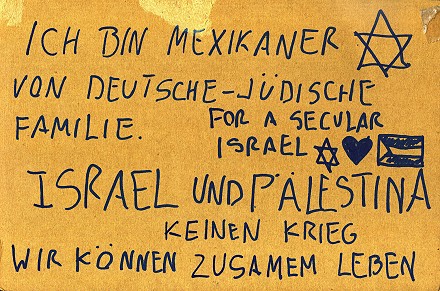 ICH BIN MEXIKANER
VON DEUTSCHE-JÜDISCHE
FAMILIE.
FOR A SECULAR
ISRAEL
ISRAEL UND PÄLESTINA
KEINEN KRIEG
WIR KÖNNEN ZUSAMEM LEBEN